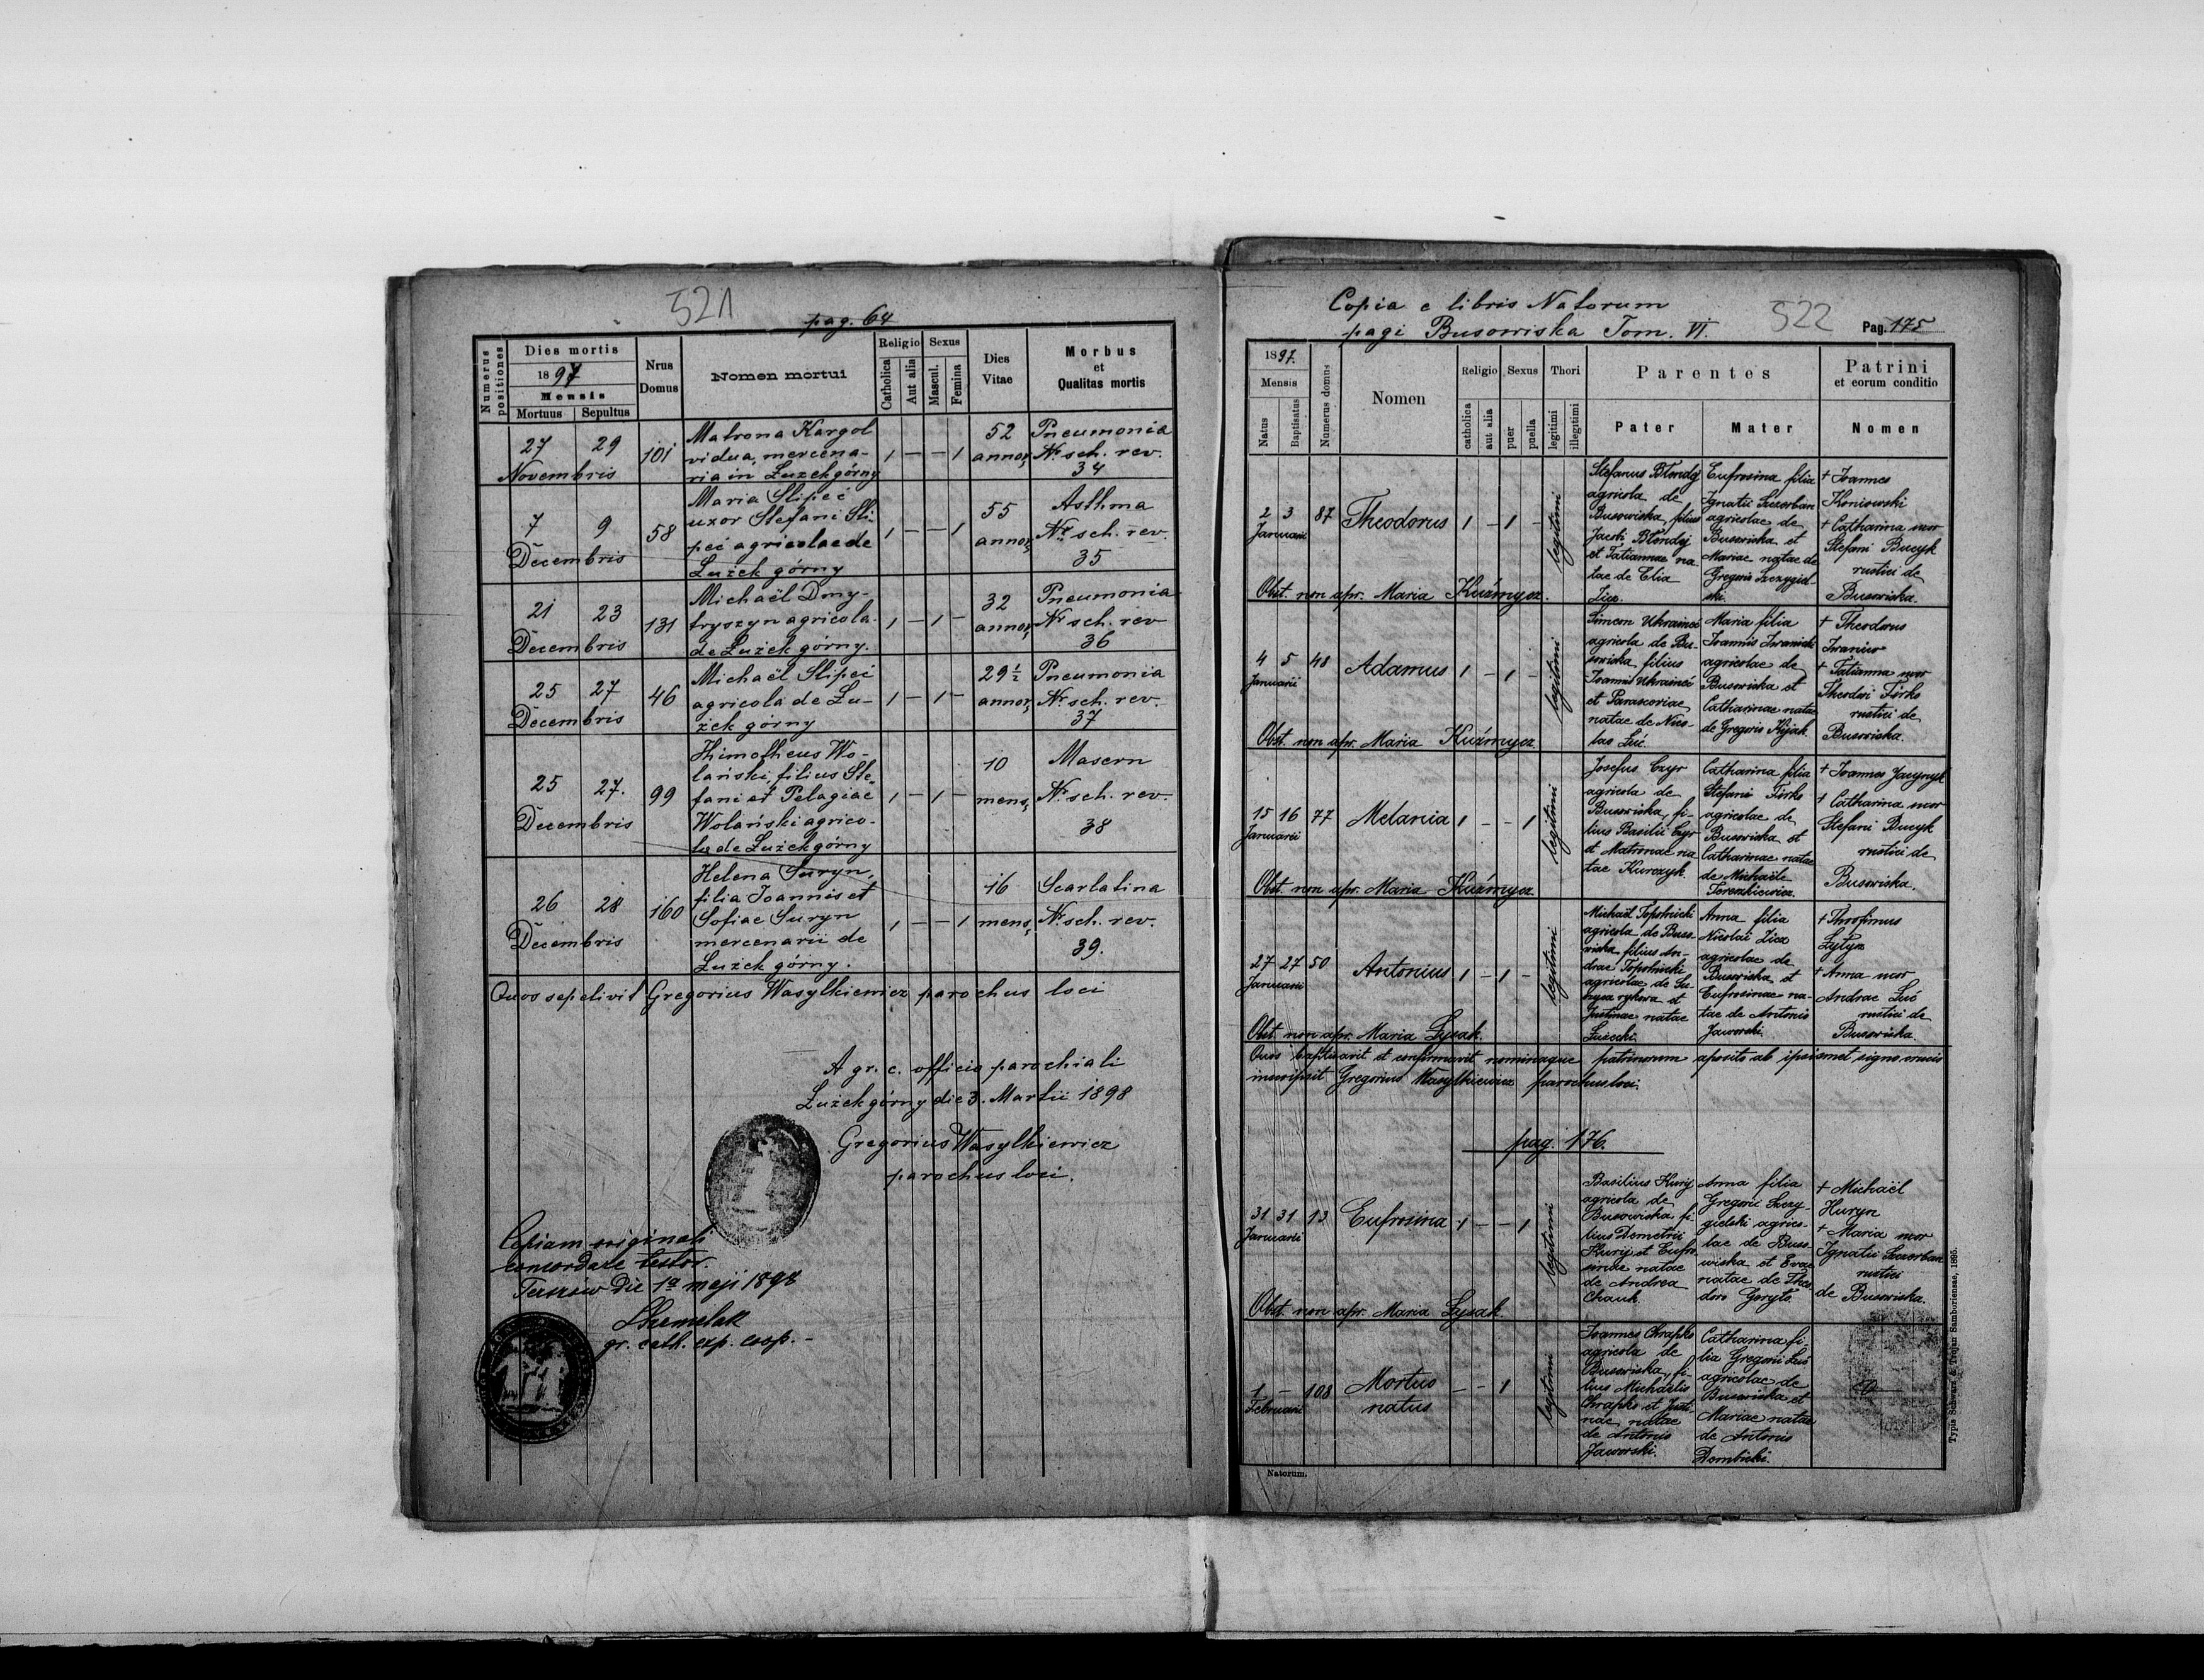 521
pag. 64
Numerus positiones
Dies mortis
1897
Mensis
Mortuus
Sepultus
Nrus Domus
Nomen mortui
Religio
Catholica
Aut alia
Sexus
Mascul.
Femina
Dies Vitae
Morbus
et
Qualitas mortis
27 29 Novembris 101
Matrona Kargol
vidua, mercena-
ria in Łużek górny
1 — — 1
52 annor,
Pneumonia
Nr. sch. rev.
34
7 9 Decembris 58
Maria Slipeć
uxor Stefani Sli-
peć agricolae de
Łużek górny
1 — — 1
55 annor,
Asthma
Nr. sch. rev.
35
21 23 Decembris 131
Michaël Dmy-
tryszyn agricola
de Łużek górny.
1 — 1 —
32 annor,
Pneumonia
Nr sch. rev
36
25 27 Decembris 46
Michaël Slipeć
agricola de Łu-
żek górny
1 — 1 —
29 1/2 annor,
Pneumonia
Nr. sch. rev.
37
25 27. Decembris 99
Thimotheus Wo-
lański, filius Ste-
fani et Pelagiae
Wolański agrico-
la de Łużek górny
1 — 1 —
10 mens,
Masern
Nr. sch. rev.
38
26 28 Decembris 160
Helena Suryn,
filia Joannis et
Sofiae Suryn
mercenarii de
Łużek górny.
1 — — 1
16 mens,
Scarlatina
Nr. sch. rev.
39.
Quos sepelivit Gregorius Wasylkiewicz parochus loci
A gr. c. officio parochiali
Łużek górny die 3. Martii 1898
Gregorius Wasylkiewicz
parochus loci.
Copiam originali
concordare testor.
Terszów Die 1a meji 1898
gr. cath. exp. coop.
Copia e libris Natorum
pagi Busowiska Tom. VI.
522
Pag. 175
1897.
Mensis
Natus
Baptisatus
Numerus domus
Nomen
Religio
catholica
aut alia
Sexus
puer
puella
Thori
legitimi
illegitimi
Parentes
Pater
Mater
Patrini
et eorum conditio
Nomen
2 3 Januarii 87 Theodorus 1 — 1 — legitimi
Stefanus Błondyj
agricola de
Busowiska, filius
Jacobi Błondyj
et Tatiannae na-
tae de Elia
Zicz.
Eufrosina filia
Ignatii Szczorban
agricolae de
Busowiska et
Mariae natae de
Gregorio Szczygiel-
ski.
+ Joannes
Koniowski
+ Catharina uxor
Stefani Bucyk
rustici de
Busowiska.
Obst. non apr. Maria Kuźmycz.
4 5 Januarii 48 Adamus 1 — 1 — legitimi
Simeon Ukraineć
agricola de Bu-
sowiska, filius
Joannis Ukraineć
et Parascoviae
natae de Nico-
lao Łuć.
Maria filia
Joannis Iwanicki
agricolae de
Busowiska et
Catharinae natae
de Gregorio Kijak.
+ Theodorus
Iwaniw
+ Tatianna uxor
Theodori Firko
rustici de
Busowiska.
Obst. non apr. Maria Kuźmycz
15 16 Januarii 77 Melania 1 — — 1 legitimi
Josefus Czyr
agricola de
Busowiska, fi-
lius Basilii Czyr
et Matronae na-
tae Kurczyk.
Catharina filia
Stefani Firko
agricolae de
Busowiska et
Catharinae natae
de Michaële
Tereszkiewicz.
+ Joannes Jacynyk
+ Catharina uxor
Stefani Bucyk
rustici de
Busowiska.
Obst. non apr. Maria Kuźmycz
27 27 Januarii 50 Antonius 1 — 1 — legitimi
Michaël Topolnicki
agricola de Buso-
wiska filius An-
dreae Topolnicki
agricolae de Su-
szyca rykowa et
Justinae natae
Łużecki.
Anna filia
Nicolai Zicz
agricolae de
Busowiska et
Eufrosinae na-
tae de Antonio
Jaworski.
+ Throfimus
Łytyn
+ Anna uxor
Andreae Łuć
rustici de
Busowiska.
Obst. non apr. Maria Łysak.
Quos baptisavit et confirmavit nominaque patrinorum aposito ab ipsismet signo crucis
inscripsit Gregorius Wasylkiewicz parochus loci.
pag. 176.
31 31 Januarii 13 Eufrosina 1 — — 1 legitimi
Basilius Kurij
agricola de
Busowiska, fi-
lius Demetrii
Kurij et Eufro-
sinae natae
de Andrea
Chauk.
Anna filia
Gregorii Szczy-
gielski agrico-
lae de Buso-
wiska et Evae
natae de Theo-
doro Goryło.
+ Michaël
Huryn
+ Maria uxor
Ignatii Szczorban
rustici
de Busowiska.
Obst. non apr. Maria Łysak.
1 — Februarii 108 Mortuo
natus — — 1 legitimi
Joannes Chrapko
agricola de
Busowiska, fi-
lius Michaëlis
Chrapko et Justi-
nae natae
de Antonio
Jaworski.
Catharina fi-
lia Gregorii Łuć
agricolae de
Busowiska et
Mariae natae
de Antonio
Dombicki.
Natorum.
Typis Schwarz & Trojan Samboriensae, 1895.